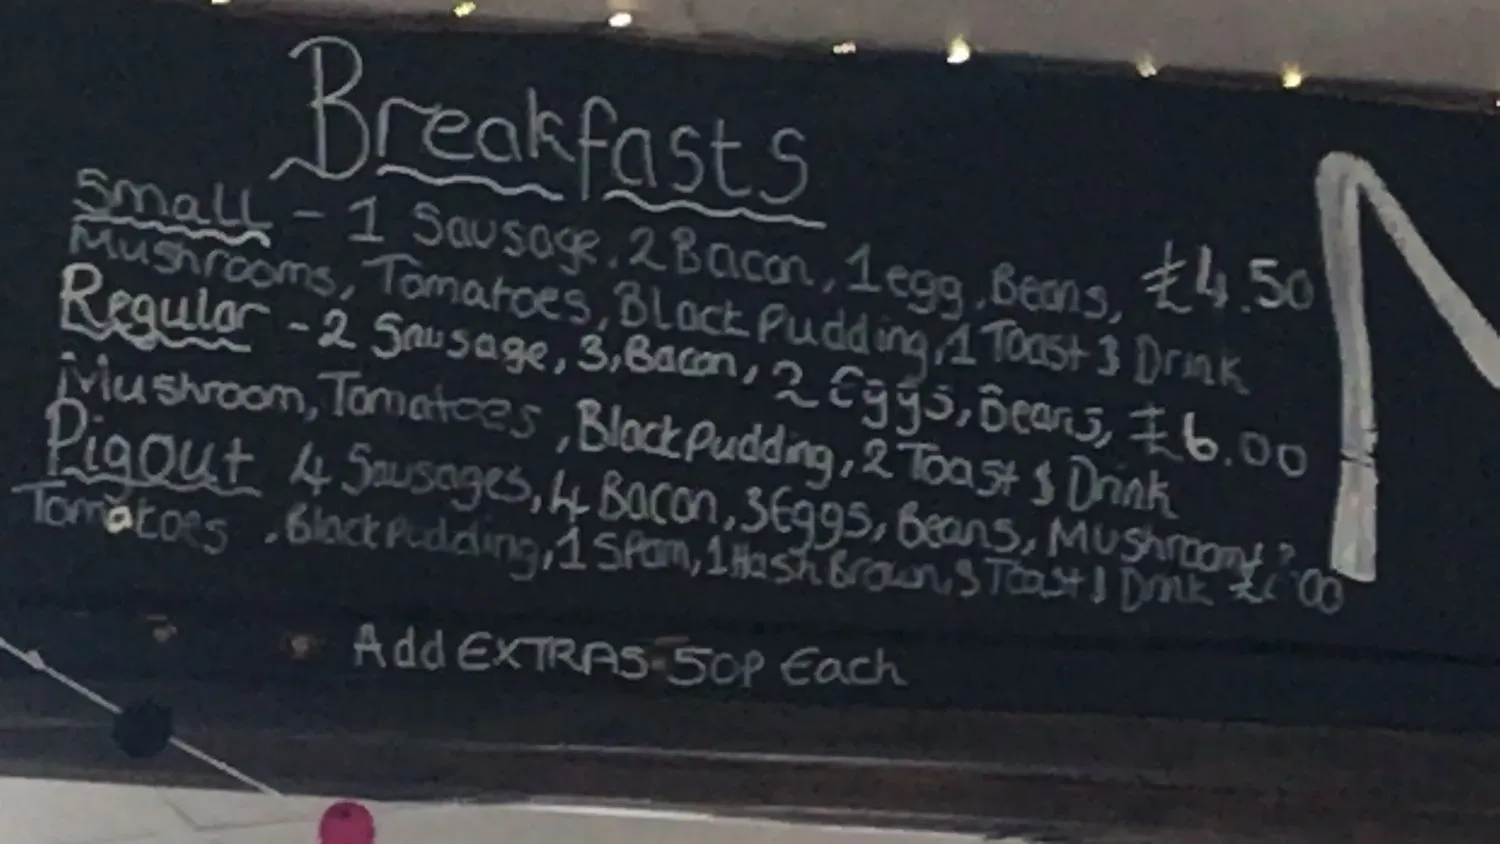 Breakfasts
Small - 1 Sausage, 2 Bacon, 1 egg, Beans, £4.50
Mushrooms, Tomatoes, Black Pudding, 1 Toast & Drink
Regular - 2 Sausage, 3, Bacon, 2 Eggs, Beans, £6.00
Mushroom, Tomatoes, Black pudding, 2 Toast & Drink
Pigout 4 Sausages, 4 Bacon, 3 Eggs, Beans, Mushrooms
Tomatoes, Black Pudding, 1 Spam, 1 Hash Brown, 3 Toast & Drink
Add EXTRAS 50P Each